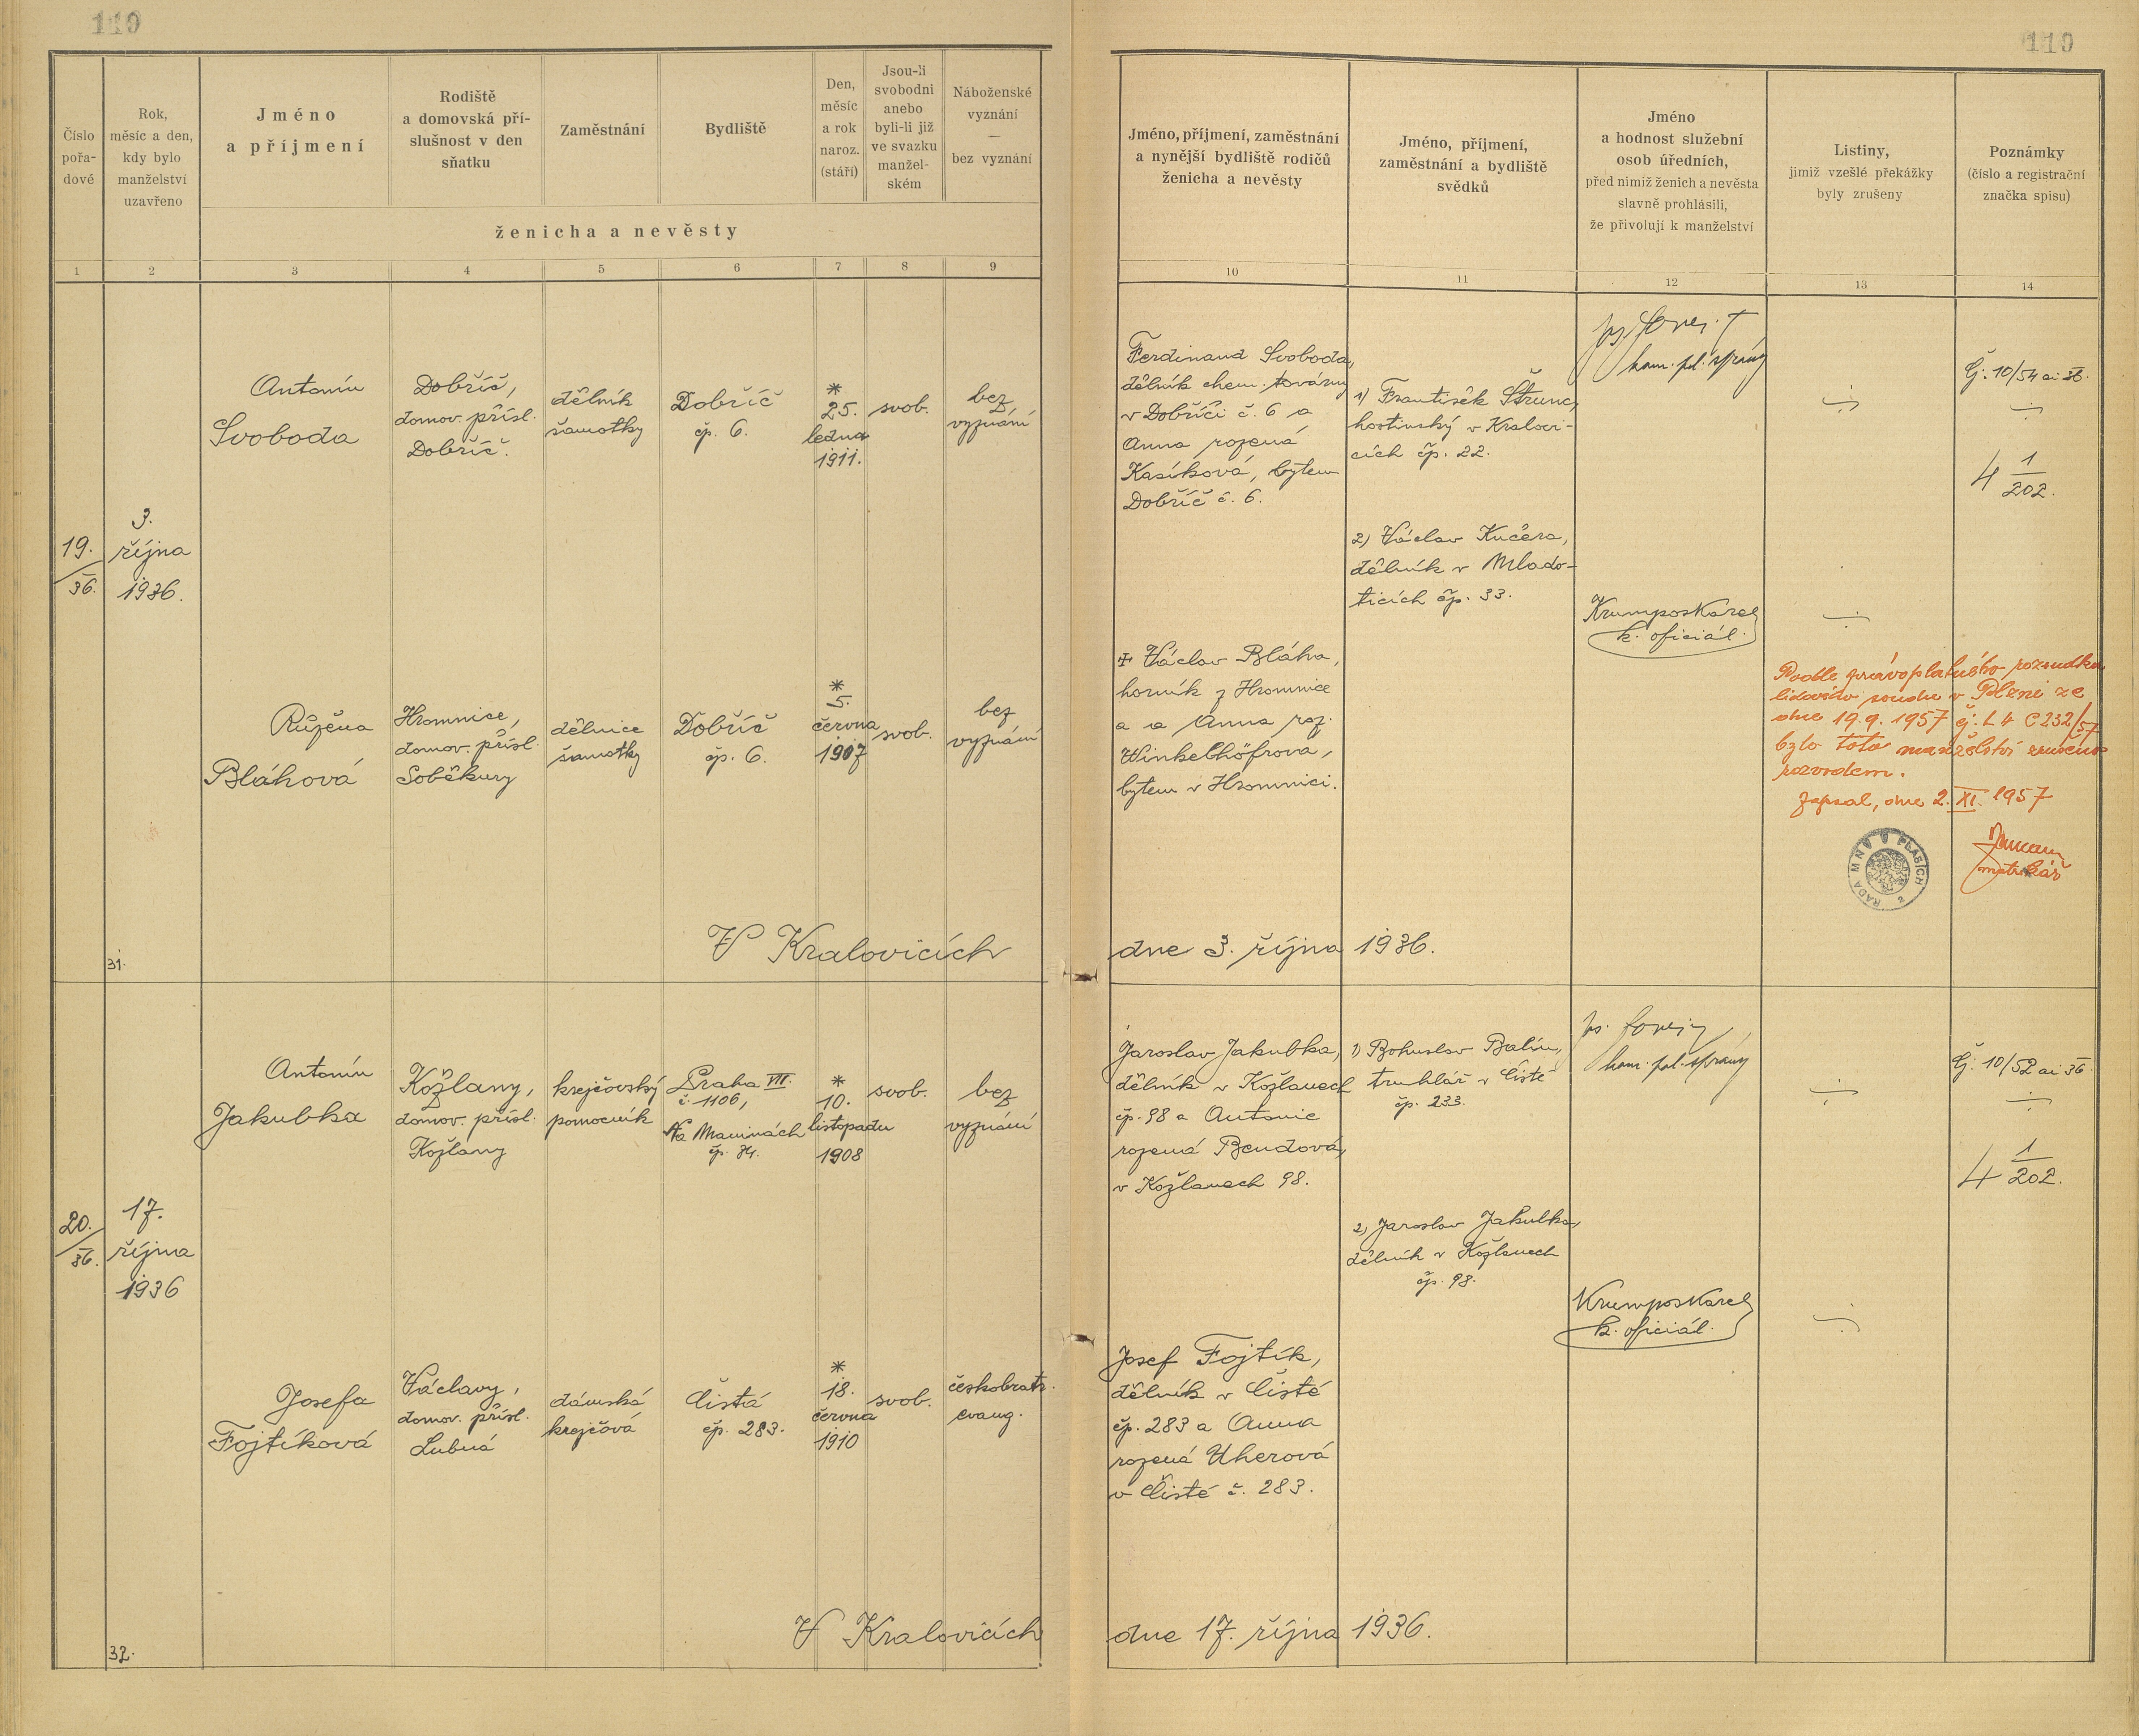 119
119
Číslo
pořa-
dové
Rok,
měsíc a den,
kdy bylo
manželství
uzavřeno
Jméno
a příjmení
Rodiště
a domovská pří-
slušnost v den
sňatku
Zaměstnání
Bydliště
Den,
měsíc
a rok
naroz.
(stáří)
Jsou-li
svobodni
anebo
byli-li již
ve svazku
manžel-
ském
Náboženské
vyznání
—
bez vyznání
ženicha a nevěsty
Jméno, příjmení, zaměstnání
a nynější bydliště rodičů
ženicha a nevěsty
Jméno, příjmení,
zaměstnání a bydliště
svědků
Jméno
a hodnost služební
osob úředních,
před nimiž ženich a nevěsta
slavně prohlásili,
že přivolují k manželství
Listiny,
jimiž vzešlé překážky
byly zrušeny
Poznámky
(číslo a registrační
značka spisu)
1 2 3 4 5 6 7 8 9 10 11 12 13 14
19.
36.
3.
října
1936.
Antonín
Svoboda
Dobříč,
domov. přísl.
Dobříč.
dělník
šamotky
Dobříč
čp. 6.
*
25.
ledna
1911.
svob.
bez
vyznání
Ferdinand Svoboda,
dělník chem. továrny
v Dobříči č. 6 a
Anna rozená
Kasíková, bytem
Dobříč č. 6.
1) František Štrunc,
hostinský v Kralovi-
cích čp. 22.
2) Václav Kučera,
dělník v Mlado-
ticích čp. 33.
kom. pol. správy
Krumpos Karel
k. oficiál.
Čj. 10/54 ai 36.
4 1/202.
Růžena
Bláhová
Hromnice,
domov. přísl.
Soběkury
dělnice
šamotky
Dobříč
čp. 6.
*
5.
června
1907
svob.
bez
vyznání
+ Václav Bláha,
horník z Hromnice
a Anna roz.
Winkelhöfrova,
bytem v Hromnici.
Podle právoplatného rozsudku
lidového soudu v Plzni ze
dne 19.9.1957 čj. L 4 C 232/57
bylo toto manželství zrušeno
rozvodem.
Zapsal, dne 2. XI. 1957
matrikář
RADA MNV V PLASÍCH
2
31.
V Kralovicích
dne 3. října 1936.
20.
36.
17.
října
1936
Antonín
Jakubka
Kožlany,
domov. přísl.
Kožlany
krejčovský
pomocník
Praha VII.
č. 1106,
Na Maninách
čp. 34.
*
10.
listopadu
1908
svob.
bez
vyznání
Jaroslav Jakubka,
dělník v Kožlanech
čp. 98 a Antonie
rozená Bendová,
v Kožlanech 98.
1) Bohuslav Balín,
truhlář v Čisté
čp. 233.
2) Jaroslav Jakubka,
dělník v Kožlanech
čp. 98.
kom. pol. správy
Krumpos Karel
k. oficiál.
Čj. 10/52 ai 36.
4 1/202.
Josefa
Fojtíková
Václavy,
domov. přísl.
Lubná
dámská
krejčová
Čistá
čp. 283.
*
18.
června
1910
svob.
českobratr.
evang.
Josef Fojtík,
dělník v Čisté
čp. 283 a Anna
rozená Uherová
v Čisté č. 283.
32.
V Kralovicích
dne 17. října 1936.